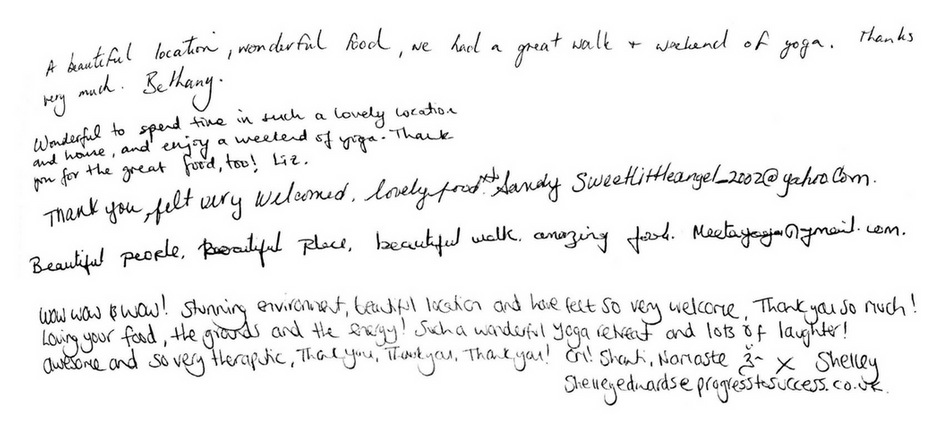 A beautiful location, wonderful food, we had a great walk + weekend of yoga. Thanks
very much. Bethany.
Wonderful to spend time in such a lovely location
and home, and enjoy a weekend of yoga. Thank
you for the great food, too! Liz.
Thank you, felt very welcomed, lovely food. Sandy Sweetlittleangel_2002@yahoo.com.
Beautiful people, Beautiful Place, beautiful walk. amazing food. Meetayoga@gmail.com.
Wow wow & wow! Stunning environment, beautiful location and have felt so very welcome, Thank you so much!
Loving your food, the grounds and the energy! Such a wonderful yoga retreat and lots of laughter!
Awesome and so very theraputic, Thank you, Thank you, Thank you! Shanti, Namaste X Shelley
Shelleyedwards@progresstosuccess.co.uk.